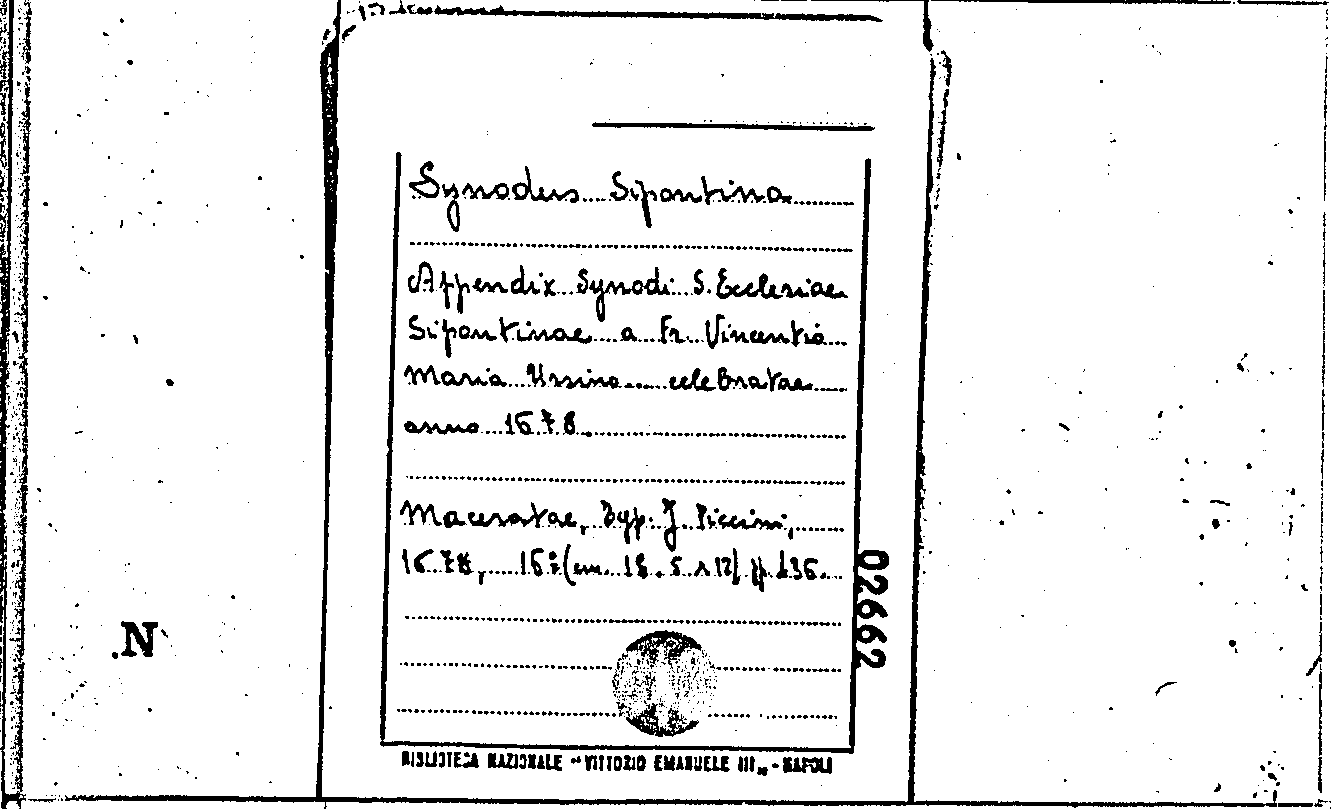 Synodus Sipontina
Appendix Synodi S. Ecclesiae
Sipontinae a Fr. Vincentio
Maria Ursino celebratae
anno 1678.
Maceratae, Typ. J. Piccini,
1678, 16° (cm. 18.5 x 12) pp. 136.
02662
.N
BIBLIOTECA NAZIONALE "VITTORIO EMANUELE III„ - NAPOLI